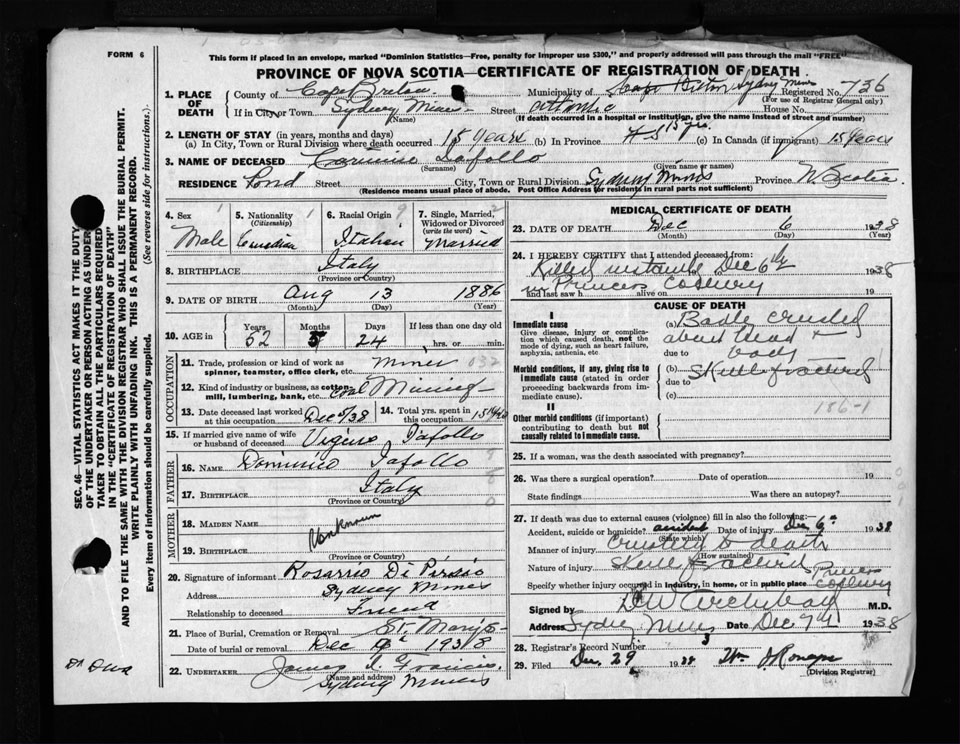 FORM 6
This form if placed in an envelope, marked "Dominion Statistics—Free, penalty for improper use $300," and properly addressed will pass through the mail "FREE"
PROVINCE OF NOVA SCOTIA—CERTIFICATE OF REGISTRATION OF DEATH
1. PLACE OF DEATH
County of Cape Breton Municipality of Cape Breton Sydney Mines Registered No. 736
(For use of Registrar General only)
If in City or Town Sydney Mines Street Atlantic House No.
(Name) (If death occurred in a hospital or institution, give the name instead of street and number)
2. LENGTH OF STAY (in years, months and days)
(a) In City, Town or Rural Division where death occurred 15 years (b) In Province 15 yrs. (c) In Canada (if immigrant) 15 years
3. NAME OF DECEASED Iafollo
(Surname) (Given name or names)
RESIDENCE Pond Street City, Town or Rural Division Sydney Mines Province N Scotia
(Residence means usual place of abode. Post Office Address for residents in rural parts not sufficient)
4. Sex Male
5. Nationality (Citizenship) Canadian
6. Racial Origin Italian
7. Single, Married, Widowed or Divorced (write the word) Married
8. BIRTHPLACE Italy
(Province or Country)
9. DATE OF BIRTH Aug 13 1886
(Month) (Day) (Year)
10. AGE in Years Months Days If less than one day
52 3 24 hrs. or min.
OCCUPATION
11. Trade, profession or kind of work as spinner, teamster, office clerk, etc. Miner 032
12. Kind of industry or business, as cotton mill, lumbering, bank, etc. Coal Mining
13. Date deceased last worked at this occupation Dec 5/38
14. Total yrs. spent in this occupation 15
15. If married give name of wife or husband of deceased Iafollo
FATHER
16. NAME Dominico Iafollo
17. BIRTHPLACE Italy
(Province or Country)
MOTHER
18. MAIDEN NAME Unknown
19. BIRTHPLACE
(Province or Country)
20. Signature of informant Rosario Di Persio
Address Sydney Mines
Relationship to deceased Friend
21. Place of Burial, Cremation or Removal St. Mary's
Date of burial or removal Dec 9 1938
22. UNDERTAKER James
(Name and address)
Sydney Mines
MEDICAL CERTIFICATE OF DEATH
23. DATE OF DEATH Dec 6 1938
(Month) (Day) (Year)
24. I HEREBY CERTIFY that I attended deceased from:
Killed instantly Dec 6th 1938
in Princess Colliery
and last saw h alive on 19
CAUSE OF DEATH
I
Immediate cause
Give disease, injury or complication which caused death, not the mode of dying, such as heart failure, asphyxia, asthenia, etc
(a) Badly crushed
about head +
due to body
Morbid conditions, if any, giving rise to immediate cause (stated in order proceeding backwards from immediate).
(b) Skull fractured
due to
(c)
186-1
II
Other morbid conditions (if important) contributing to death but not causally related to immediate cause.
25. If a woman, was the death associated with pregnancy?
26. Was there a surgical operation? Date of operation 19
State findings Was there an autopsy?
27. If death was due to external causes (violence) fill in also the following:
Accident, suicide or homicide? accident Date of injury Dec 6th 1938
(State which)
Manner of injury Crushed to death
(How sustained)
Nature of injury Skull fractured
Specify whether injury occured in industry, in home, or in public place Princess Colliery
Signed by Archibald M.D.
Address Sydney Mines Date Dec 7th 1938
28. Registrar's Record Number 3
29. Filed Dec. 29 1938 Wm
(Division Registrar)
SEC. 46—VITAL STATISTICS ACT MAKES IT THE DUTY
OF THE UNDERTAKER OR PERSON ACTING AS UNDER-
TAKER TO OBTAIN ALL THE PARTICULARS REQUIRED
IN THE "CERTIFICATE OF REGISTRATION OF DEATH"
AND TO FILE THE SAME WITH THE DIVISION REGISTRAR WHO SHALL ISSUE THE BURIAL PERMIT.
WRITE PLAINLY WITH UNFADING INK. THIS IS A PERMANENT RECORD.
Every item of information should be carefully supplied. (See reverse side for instructions.)